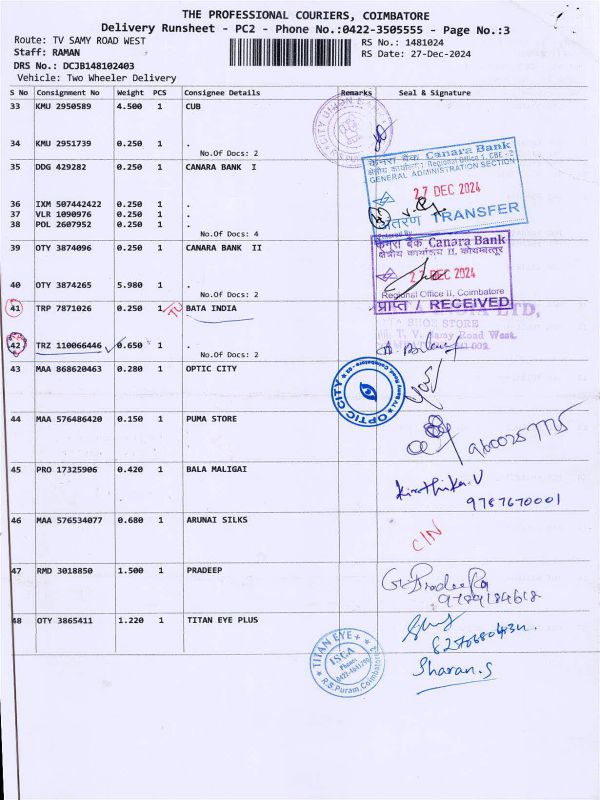 THE PROFESSIONAL COURIERS, COIMBATORE
Delivery Runsheet - PC2 - Phone No.:0422-3505555 - Page No.:3
Route: TV SAMY ROAD WEST
RS No.: 1481024
Staff: RAMAN
RS Date: 27-Dec-2024
DRS No.: DCJB148102403
Vehicle: Two Wheeler Delivery
S No Consignment No Weight PCS Consignee Details Remarks Seal & Signature
33 KMU 2950589 4.500 1 CUB
34 KMU 2951739 0.250 1 .
No.Of Docs: 2
35 DDG 429282 0.250 1 CANARA BANK I
केनरा बैंक Canara Bank
Regional Office 1, CBE - 2
GENERAL ADMINISTRATION SECTION
27 DEC 2024
36 IXM 507442422 0.250 1 .
37 VLR 1090976 0.250 1 .
38 POL 2607952 0.250 1 .
अंतरण TRANSFER
No.Of Docs: 4
39 OTY 3874096 0.250 1 CANARA BANK II
केनरा बैंक Canara Bank
क्षेत्रीय कार्यालय II, कोयम्बत्तूर
27 DEC 2024
40 OTY 3874265 5.980 1 .
No.Of Docs: 2
Regional Office II, Coimbatore
प्राप्त / RECEIVED
41 TRP 7871026 0.250 1 BATA INDIA
LTD,
SHOE STORE
T. V. Samy Road West.
42 TRZ 110066446 0.650 1 .
No.Of Docs: 2
43 MAA 868620463 0.280 1 OPTIC CITY
OPTIC CITY
44 MAA 576486420 0.150 1 PUMA STORE
45 PRO 17325906 0.420 1 BALA MALIGAI
Kiruthika.V
9787670001
46 MAA 576534077 0.680 1 ARUNAI SILKS
CIN
47 RMD 3018850 1.500 1 PRADEEP
9789184618
48 OTY 3865411 1.220 1 TITAN EYE PLUS
TITAN EYE+
ISGA
Phone:
R.S.Puram, Coimbatore
Sharan.S